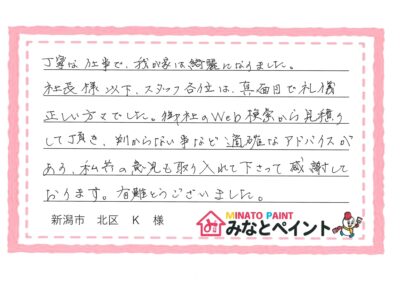 丁寧な仕事で、我が家は綺麗になりました。
社長様以下、スタッフ各位は、真面目で礼儀
正しい方々でした。御社のWeb検索から見積り
して頂き、判からない事など適確なアドバイスが
あり、私共の意見も取り入れて下さって感謝して
おります。有難とうございました。
新潟市 北区 K 様
MINATO PAINT
みなとペイント